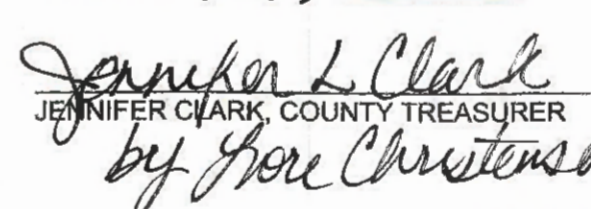 Jennifer L Clark
JENNIFER CLARK, COUNTY TREASURER
by Lore Christens